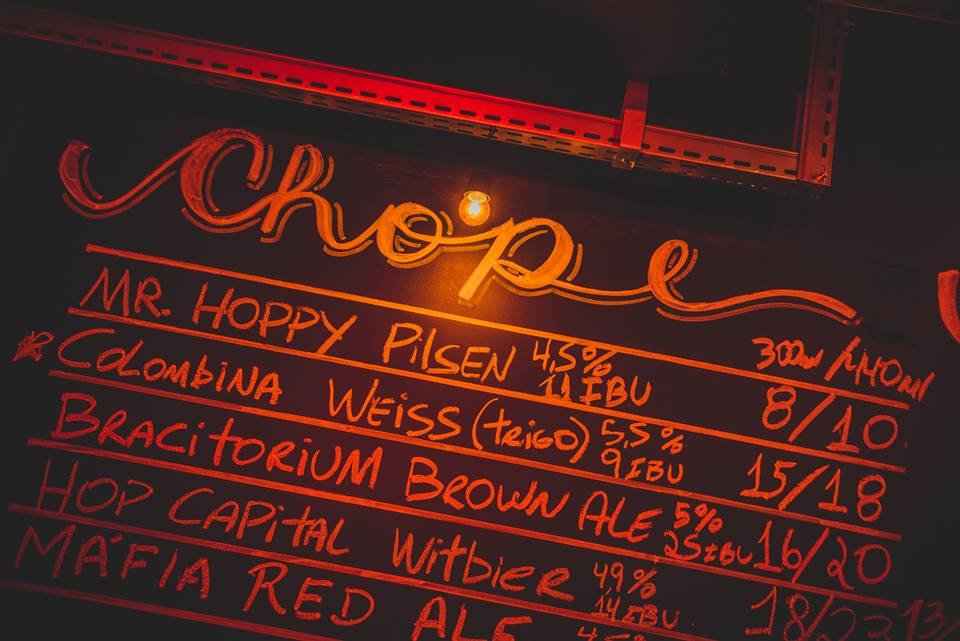 Chope
300ml/440ml
MR. HOPPY PILSEN 4,5% 11 IBU 8/10
COLOMBINA WEISS (TRIGO) 5,5% 9 IBU 15/18
BRACITORIUM BROWN ALE 5% 25 IBU 16/20
HOP CAPITAL WITBIER 49% 14 IBU 18/
MÁFIA RED ALE